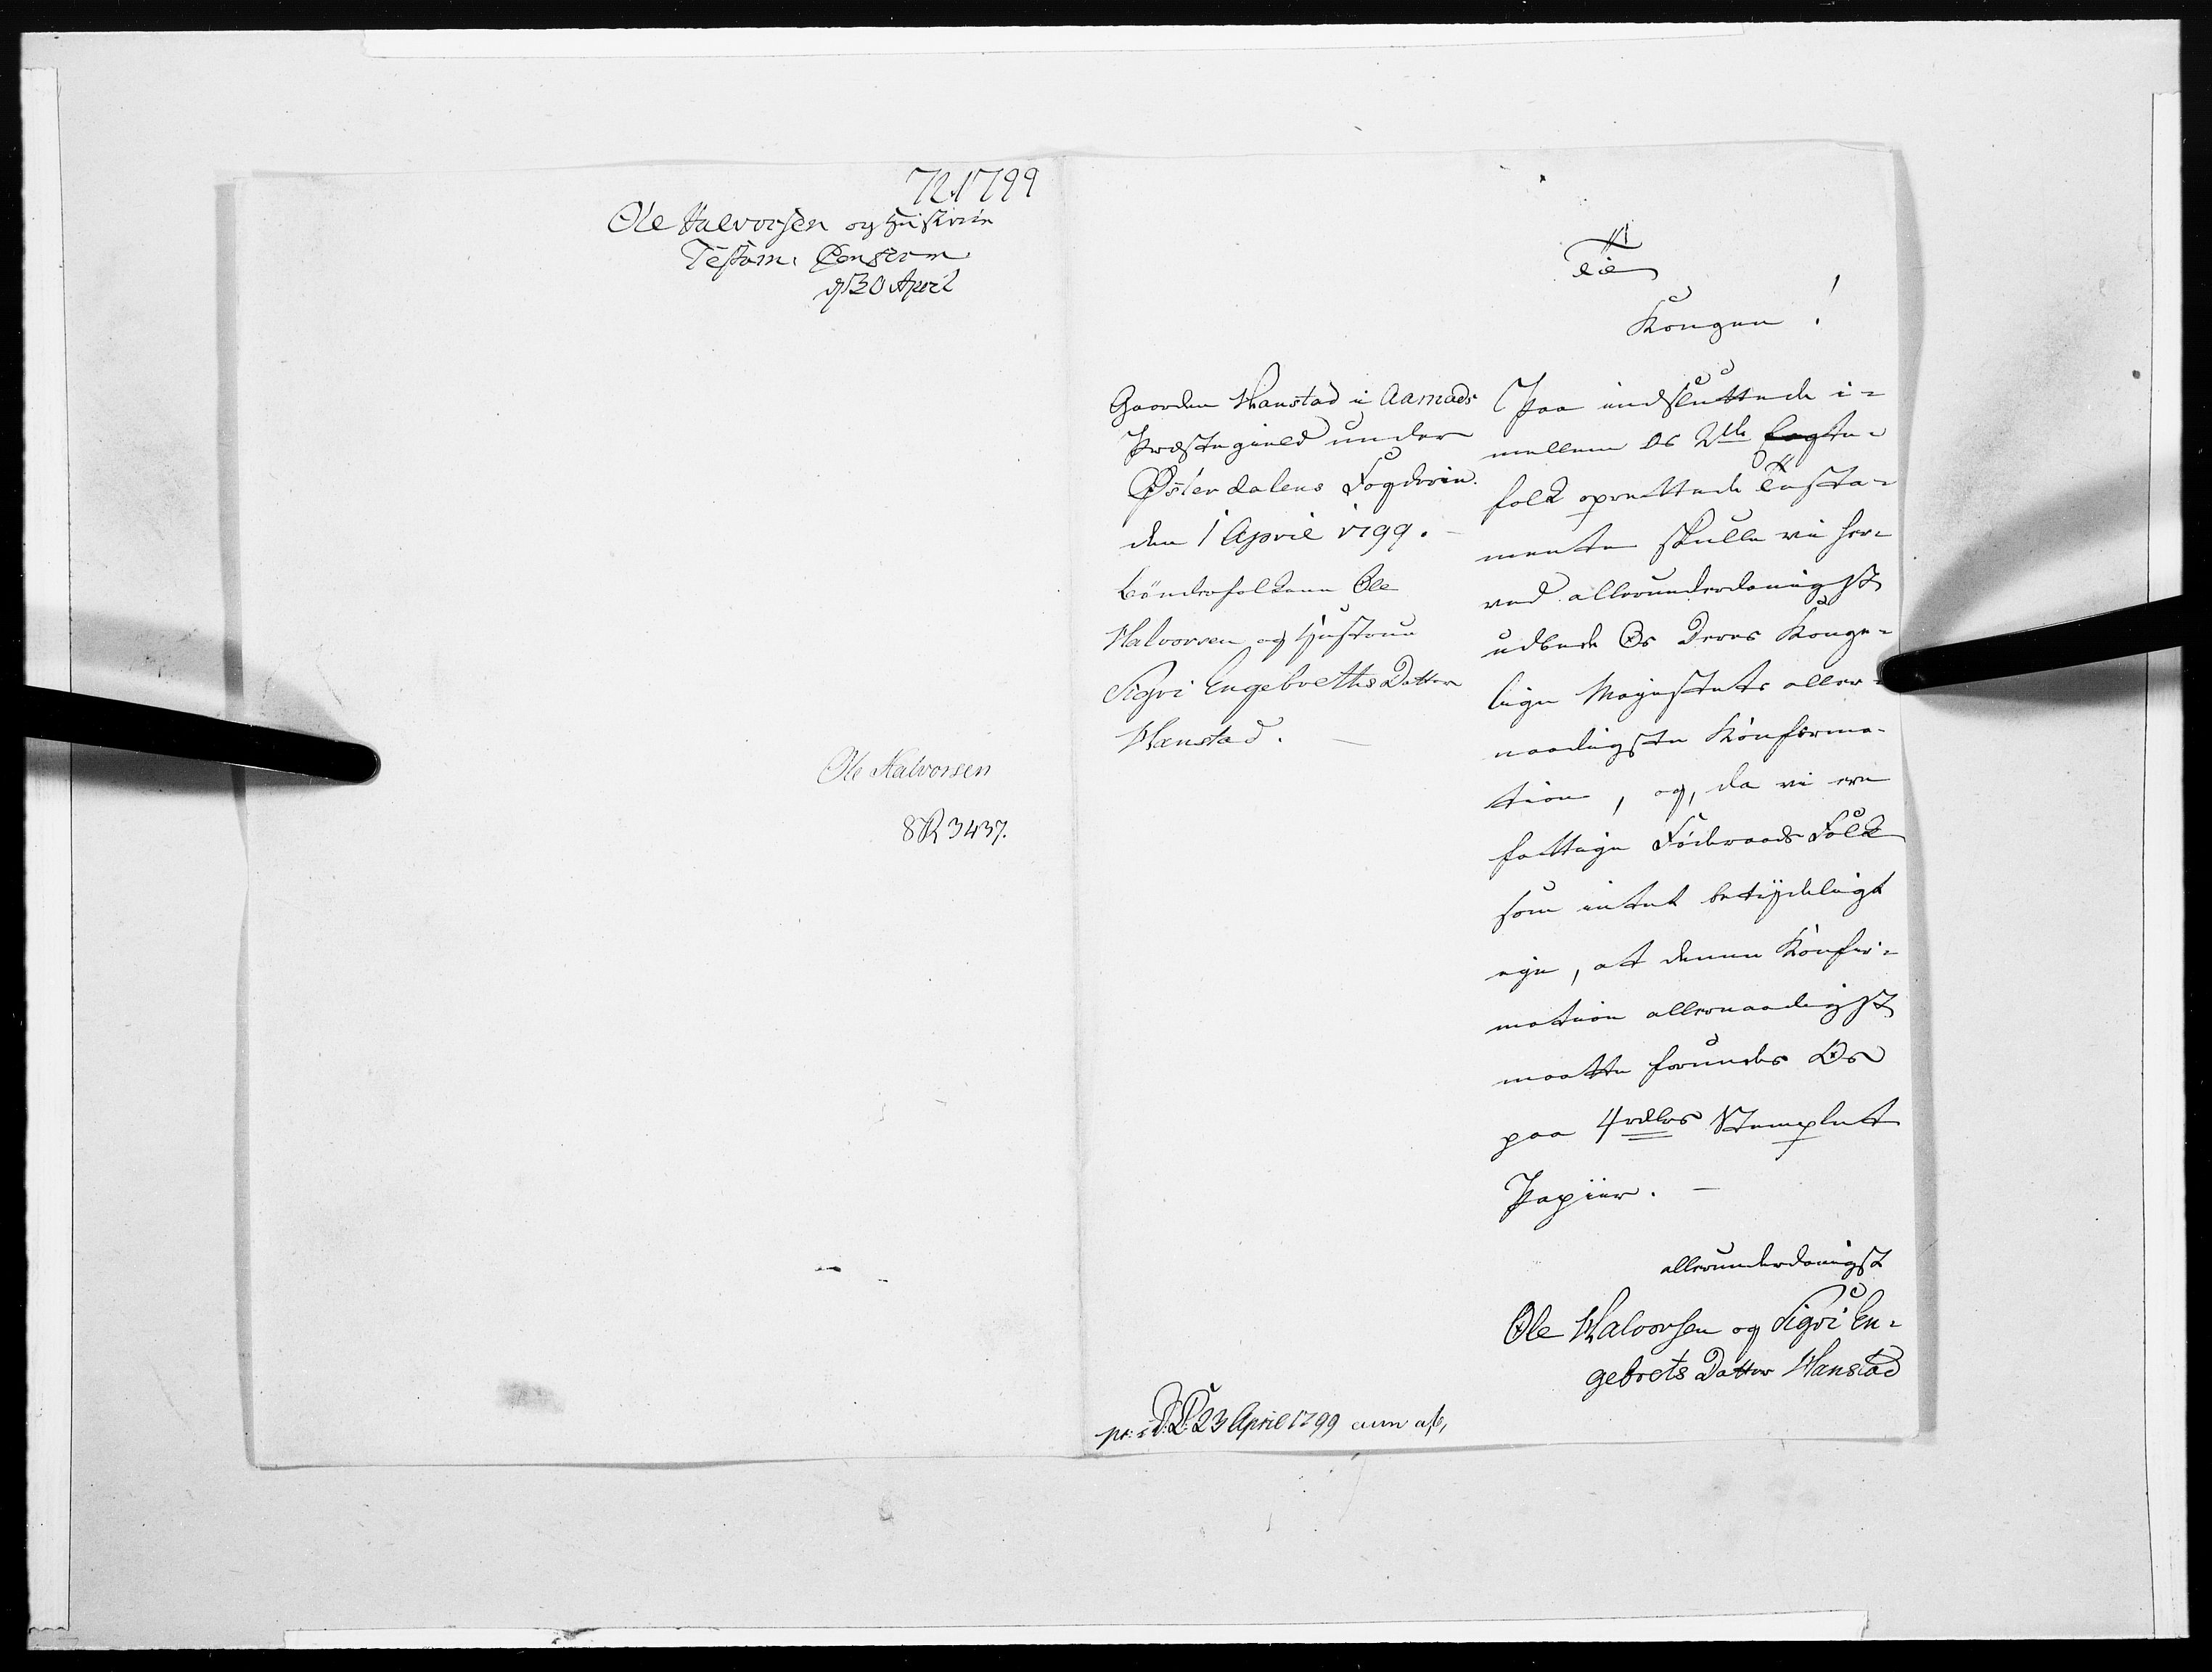 721799
Ole Halvorsen og Hustrues
Testam: Confirm
d 30 April
Ole Halvorsen
8R 3437.
Til
Kongen!
Gaarden Hanstad i Aamads
Præstegield under
Østerdalens Fogderie.
den 1 April 1799.
Bönderfolkene Ole
Halvorsen og Hustrue
Sigri Engebreths Datter
Hanstad.
Paa indsluttede i-
mellem os 2de Egte-
folk oprettede Testa-
mente skulle vi her-
ved allerunderdanigst
udbede Os Deres Konge-
lige Majestæts aller-
naadigste Konfirma-
tion, og, da vi ere
fattige Föderaads Folk
som intet betydeligt
eje, at denne Konfir-
mation allernaadigst
maatte forundes Os
paa 4 rdlrs Stemplet
Papiir.
allerunderdanigst
Ole Halvorsen og Sigri En-
gebrets Datter Hanstad
pr: d: 23 April 1799